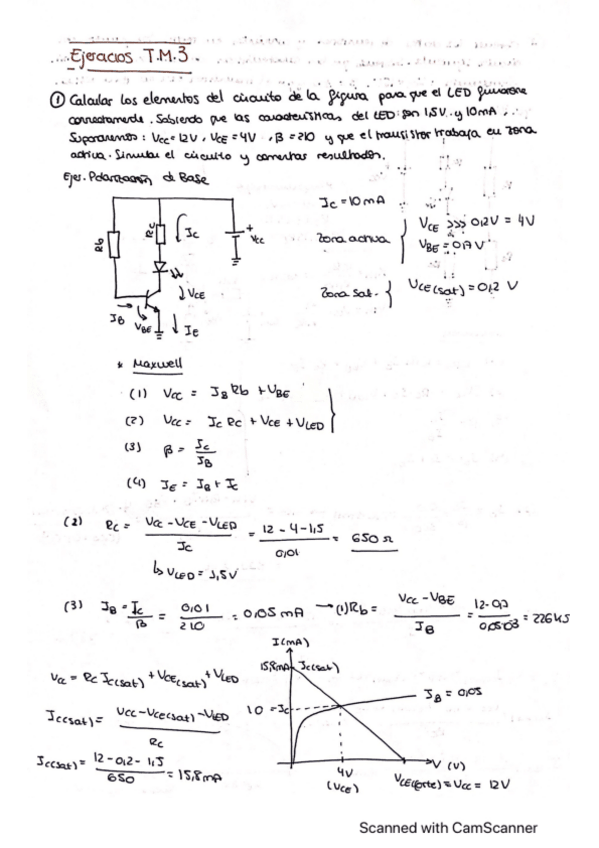 Ejercicios T.M.3.
① Calcular los elementos del circuito de la figura para que el LED funcione
correctamente. Sabiendo que las características del LED son 1,5V y 10mA.
Suponemos: Vcc=12V, VCE=4V, β=210 y que el transistor trabaja en zona
activa. Simular el circuito y comentar resultados.
Ejer. Polarización de Base
Ic=10mA
Zona activa { VCE >>> 0,2V = 4V
VBE = 0,7V
Zona sat. { VCE(sat) = 0,2 V
Rb
Rc
Ic
+
Vcc
VCE
IB
VBE
IE
* Maxwell
(1) Vcc = IB Rb + VBE
(2) Vcc = Ic Rc + VCE + VLED
(3) β = Ic / IB
(4) IE = IB + Ic
(2) Rc = Vcc - VCE - VLED / Ic = 12 - 4 - 1,5 / 0,01 = 650 Ω
↳ VLED = 1,5V
(3) IB = Ic / β = 0,01 / 210 = 0,05 mA → (1) Rb = Vcc - VBE / IB = 12-0,7 / = 226
I(mA)
15,8mA Ic(sat)
Vcc = Rc Ic(sat) + VCE(sat) + VLED
IB = 0,05
10 = Ic
Ic(sat) = Vcc - VCE(sat) - VLED / Rc
V (V)
Ic(sat) = 12 - 0,2 - 1,5 / 650 = 15,8mA
4V
(VCE)
VCE(corte) = Vcc = 12V
Scanned with CamScanner